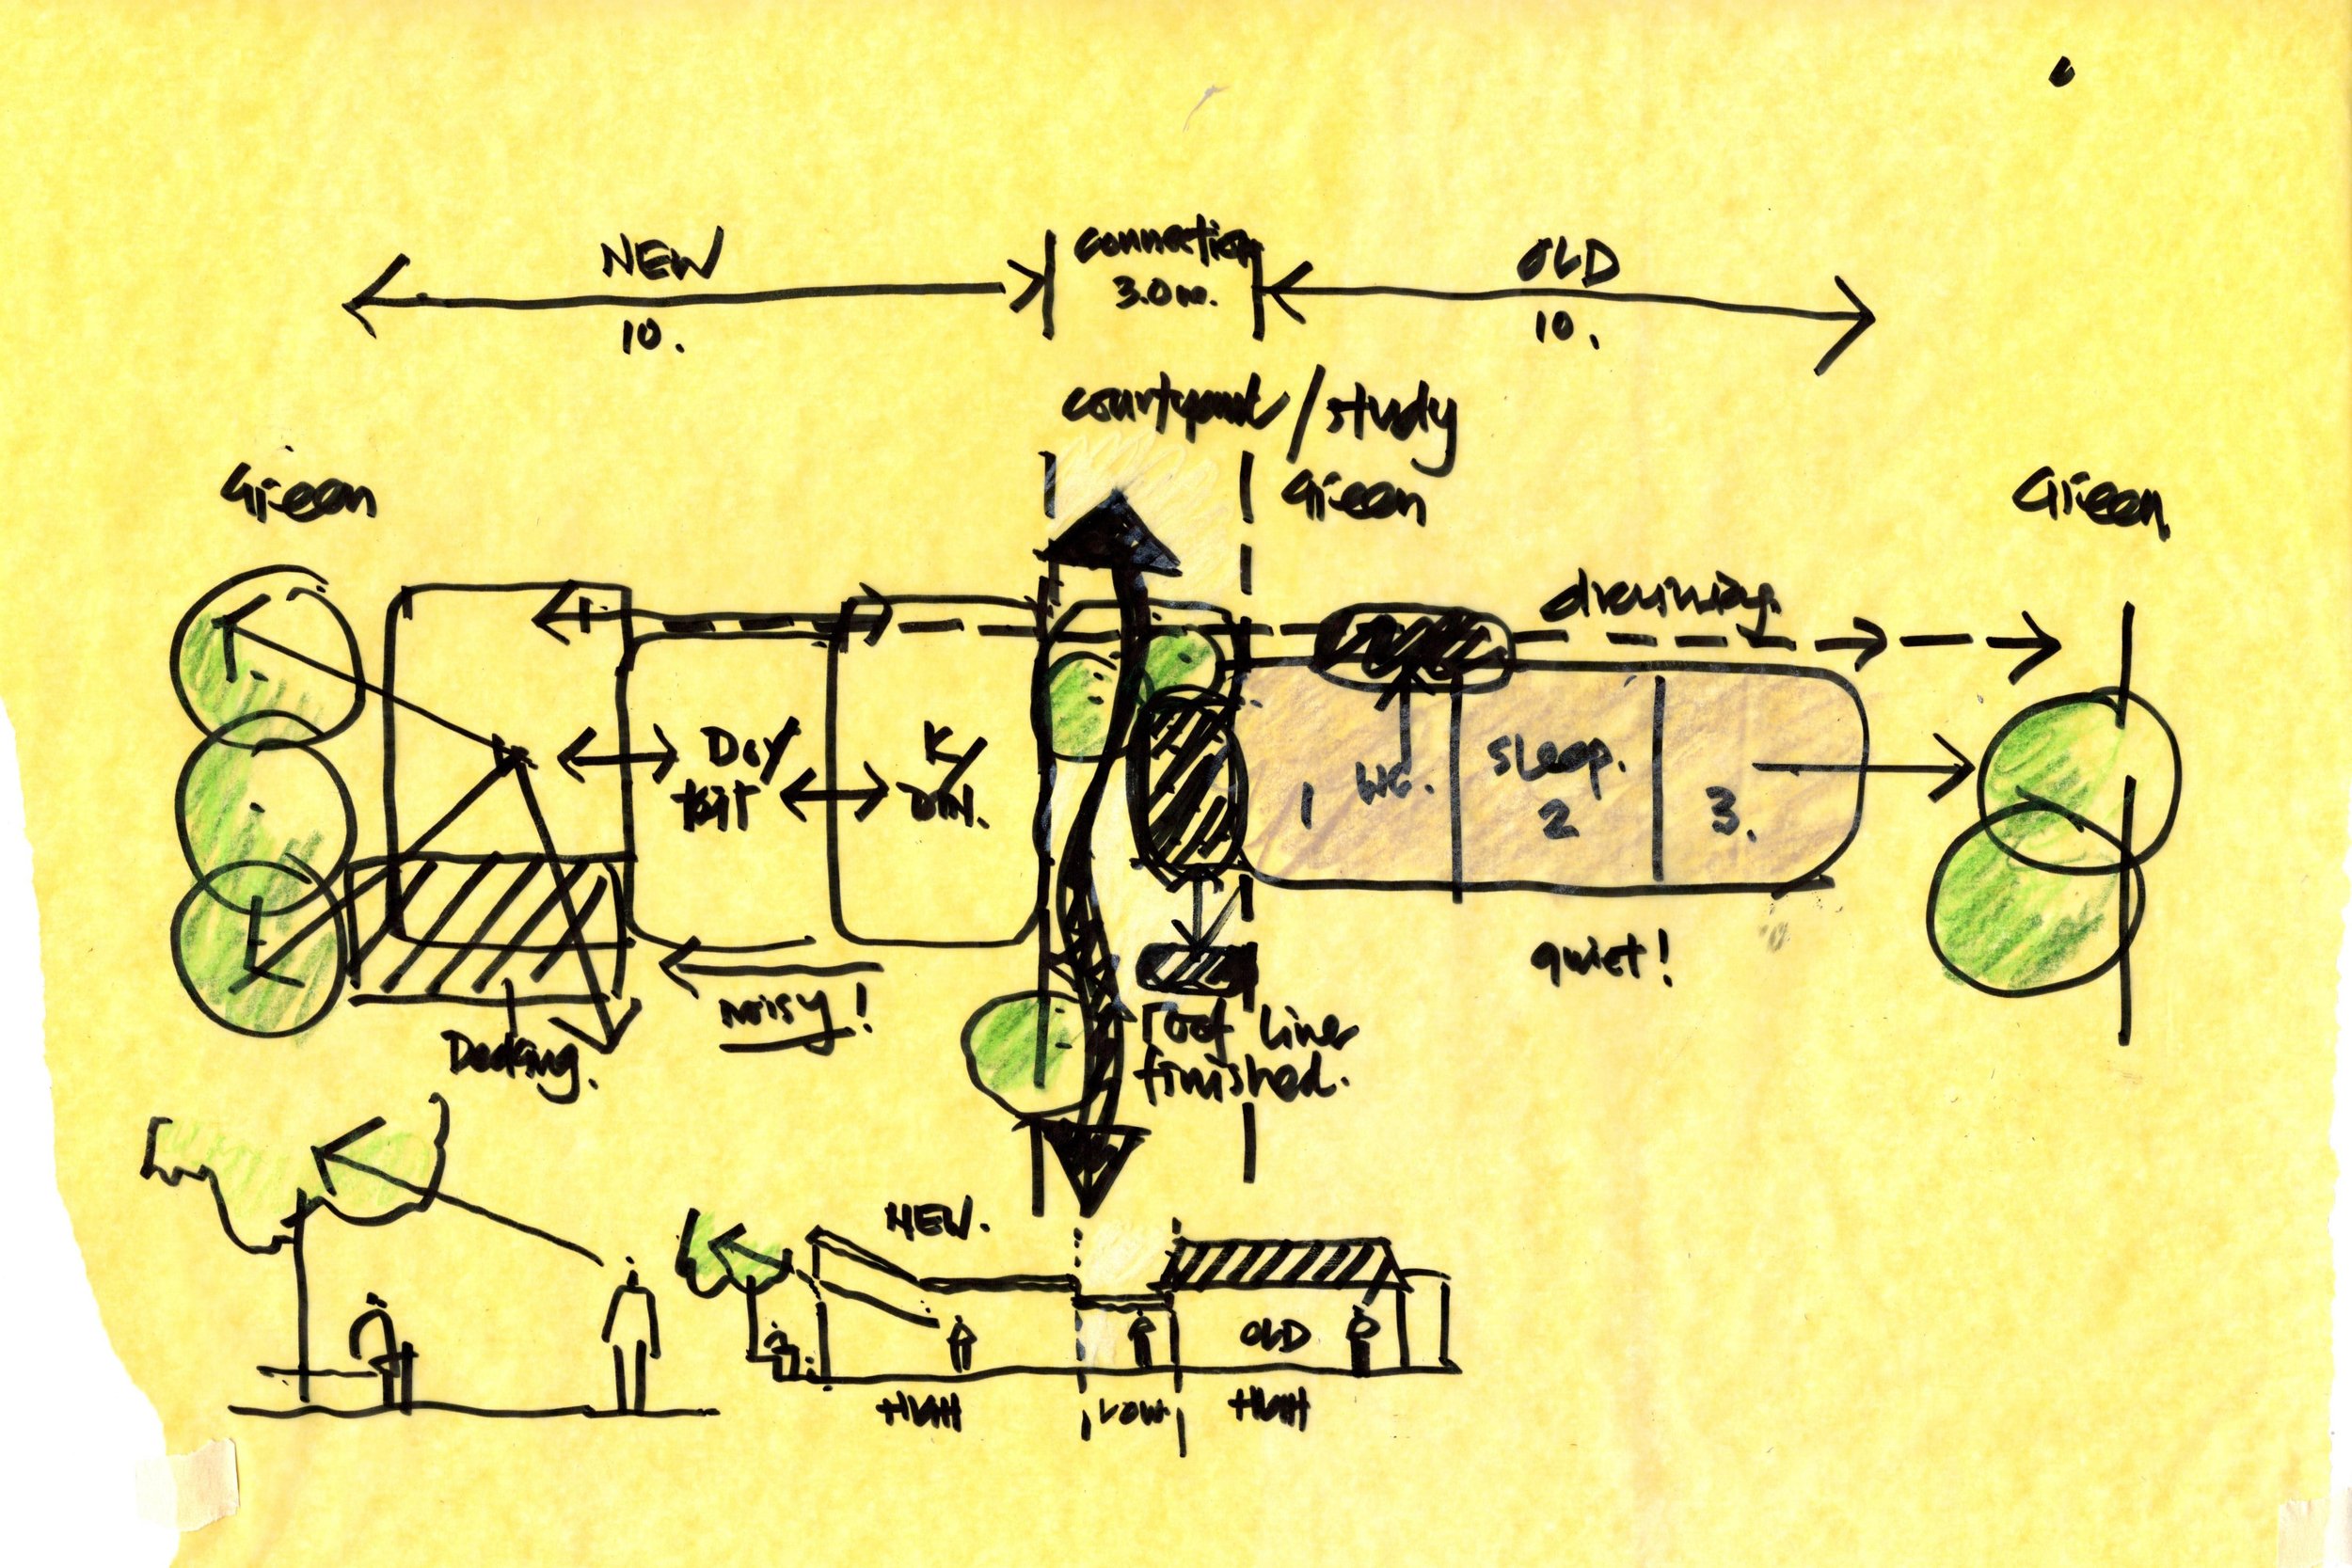 NEW
10.
connection
3.0m.
OLD
10.
courtyard/study
Green
Green
Green
draining
Day/
K/
DIN.
1
WC.
sleep.
2
3.
noisy!
quiet!
Decking.
roof line
finished.
NEW.
OLD
HIGH
LOW
HIGH